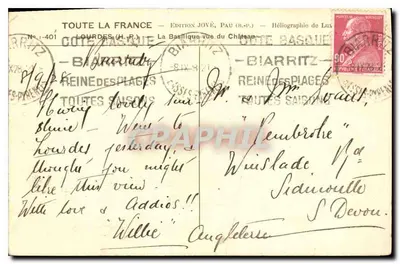 TOUTE LA FRANCE — EDITION JOVÉ, PAU (B.-P.) Héliographie de Lux
N° -401 LOURDES (H.-P.) — La Basilique vue du Château
BIARRITZ
COTE BASQUE
BIARRITZ
REINE DES PLAGES
TOUTES SAISONS
BIARRITZ
COTE BASQUE
BIARRITZ
REINE DES PLAGES
TOUTES SAISONS
8/9/28
Having lovely sun
shine! Went to
Lourdes yesterday, &
thought you might
like this view
With love & Addios!!
"Willie"
Mr & Mrs
"Pembroke"
Winslade Rd
Sidmouth
S Devon.
Angleterre
CARTHAPHILE